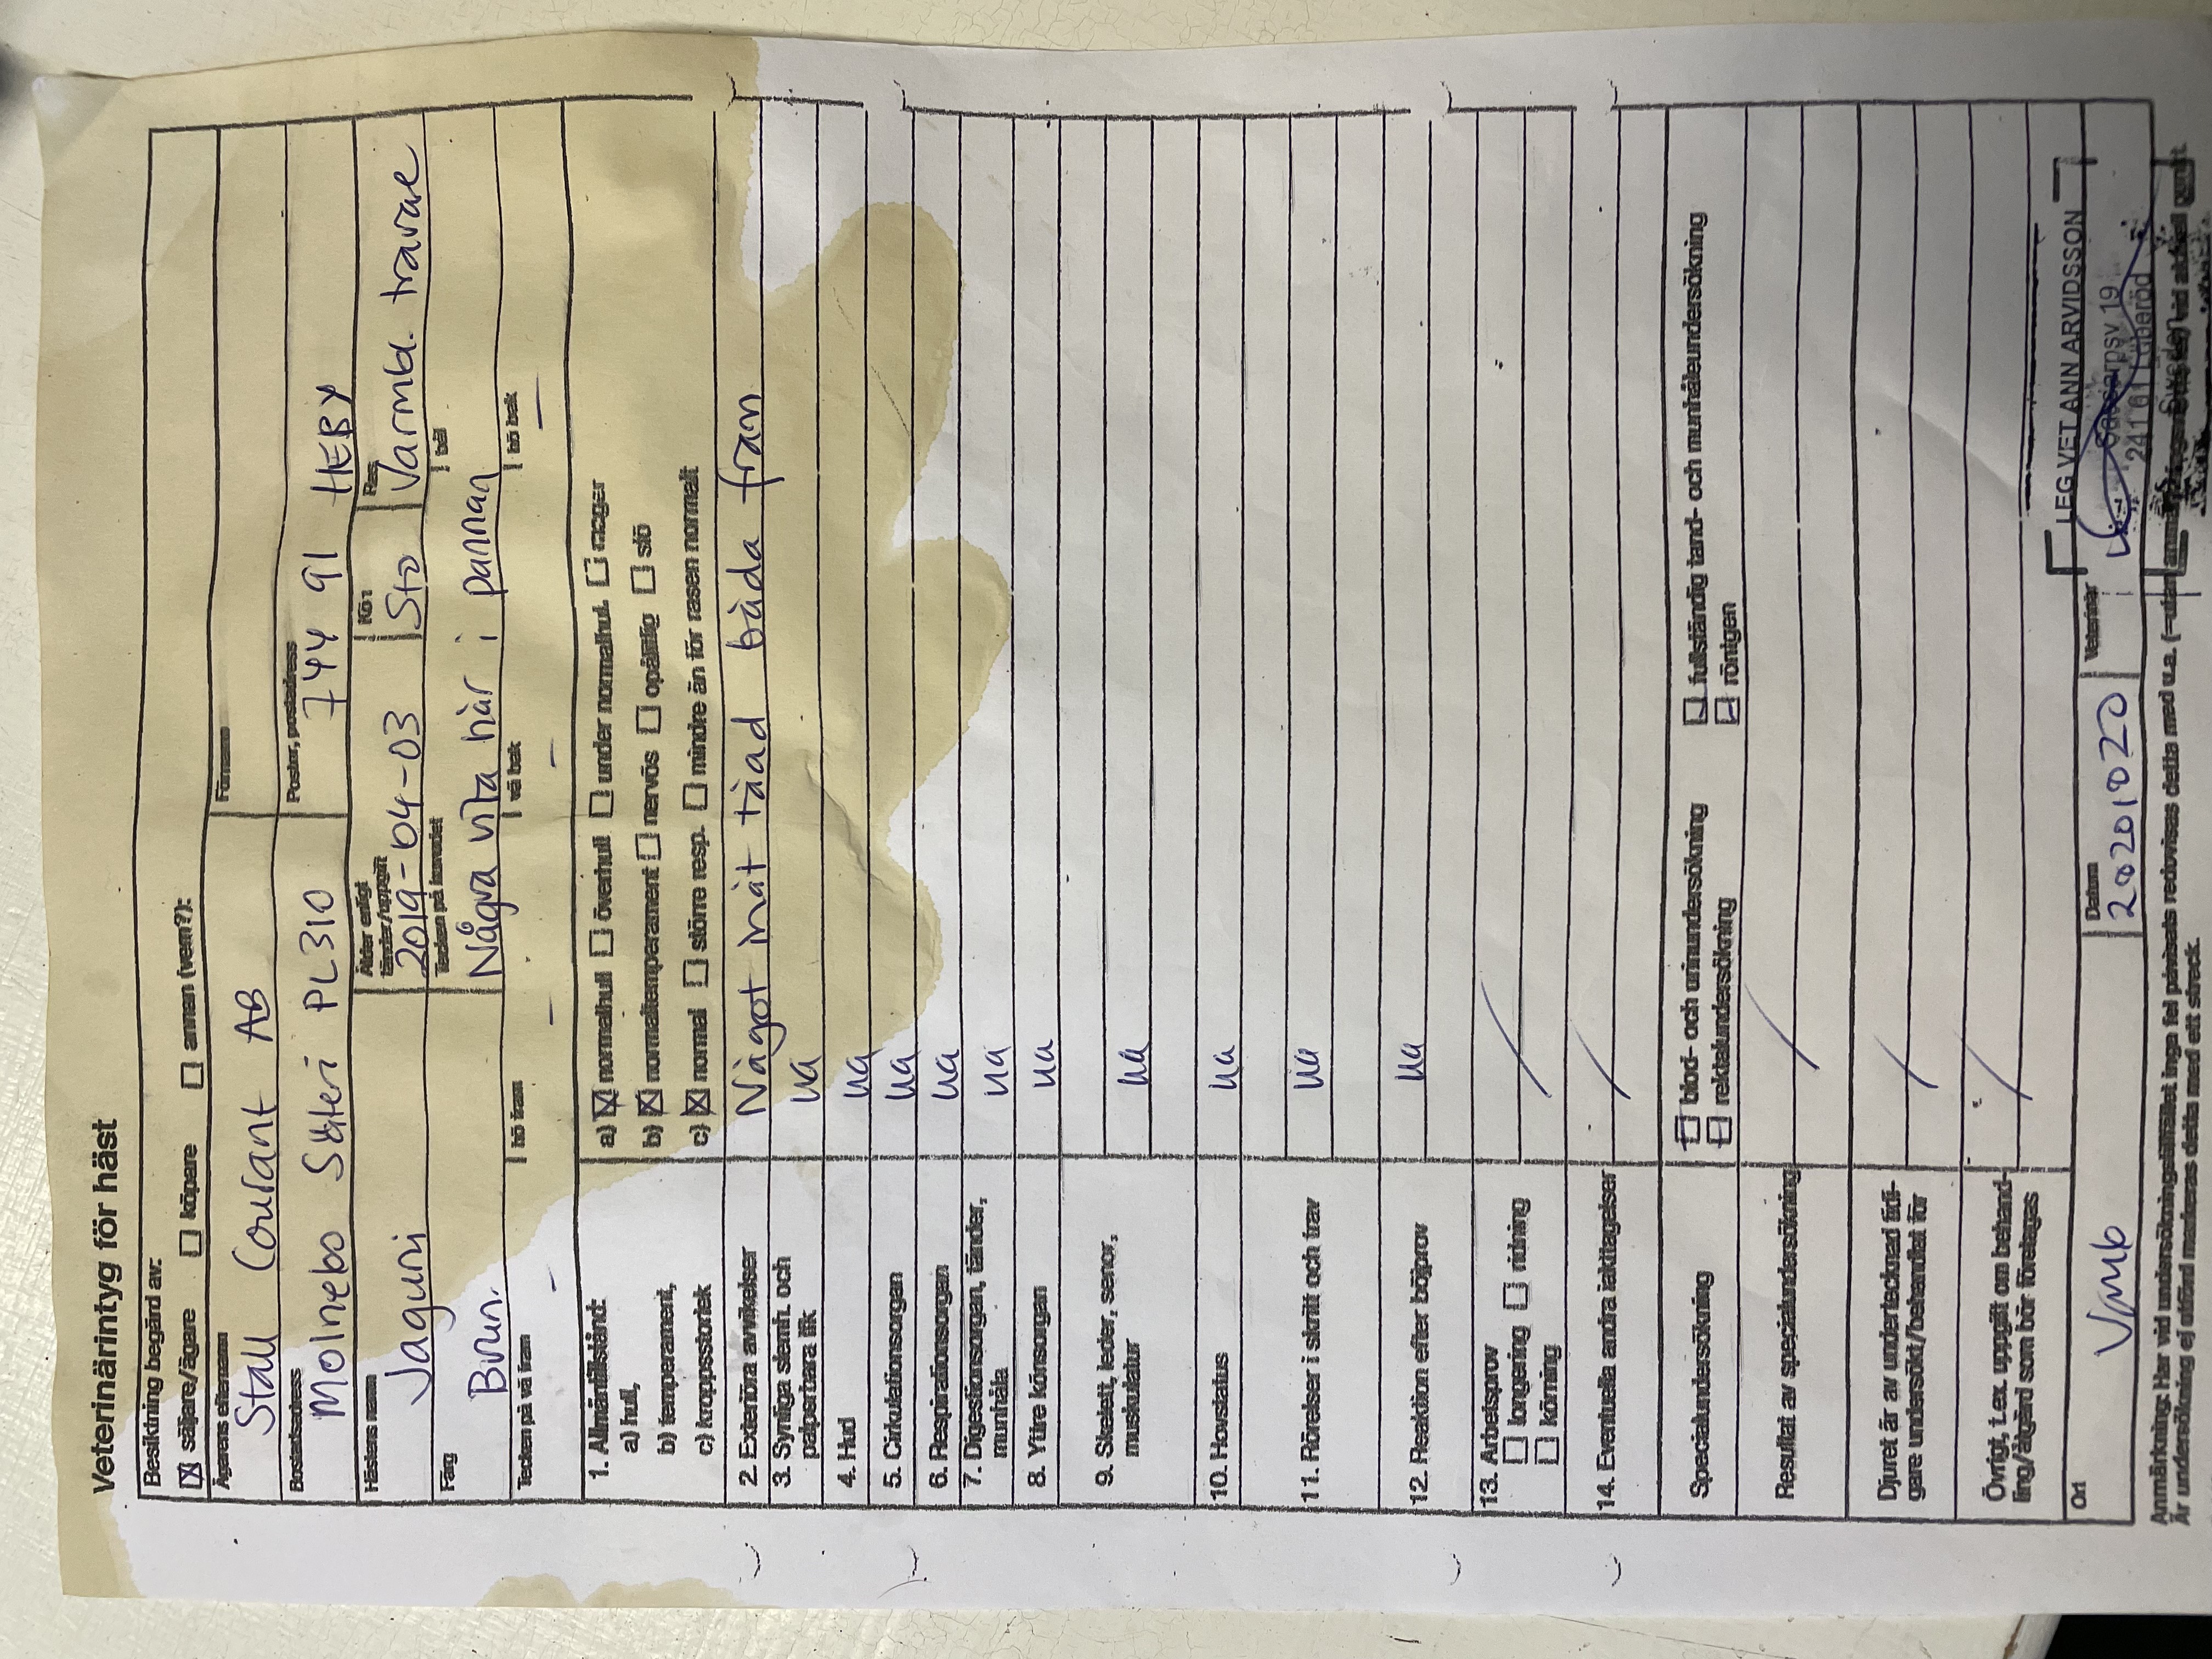 Veterinärintyg för häst
Besiktning begärd av:
☒ säljare/ägare ☐ köpare ☐ annan (vem?):
Ägarens efternamn Förnamn
Stall Courant AB
Bostadsadress Postnr, postadress
Molnebo Säteri PL310 744 91 HEBY
Hästens namn Ålder enligt tänder/uppgift Kön Ras
Jaguni 2019-04-03 Sto Varmbl. travare
Färg Tecken på huvudet bål
Brun. Några vita hår i pannan
Tecken på vä fram hö fram vä bak hö bak
- - - -
1. Allmäntillstånd:
a) hull, a) ☒ normalhull ☐ överhull ☐ under normalhull. ☐ mager
b) temperament, b) ☒ normaltemperament ☐ nervös ☐ opålitlig ☐ slö
c) kroppsstorlek c) ☒ normal ☐ större resp. ☐ mindre än för rasen normalt
2. Exteriöra avvikelser Något inåt tåad båda fram
3. Synliga slemh. och ua
palperbara llk
4. Hud ua
5. Cirkulationsorgan ua
6. Respirationsorgan ua
7. Digestionsorgan, tänder, ua
munhåla
8. Yttre könsorgan ua
9. Skelett, leder, senor, ua
muskulatur
10. Hovstatus ua
11. Rörelser i skritt och trav ua
12. Reaktion efter böjprov ua
13. Arbetsprov
☐ longering ☐ ridning
☐ körning
14. Eventuella andra iakttagelser
Specialundersökning ☐ blod- och urinundersökning ☐ fullständig tand- och munhåleundersökning
☐ rektalundersökning ☐ röntgen
Resultat av specialundersökning
Djuret är av undertecknad tidi-
gare undersökt/behandlat för
Övrigt, t.ex. uppgift om behand-
ling/åtgärd som bör företages
Ort Datum Veterinär
Vomb 20201020
LEG VET ANN ARVIDSSON
19
241 61
Sweden
Anmärkning: Har vid undersökningstillfället inga fel påvisats redovisas detta med u.a. (=utan
Är undersökning ej utförd markeras detta med ett streck.